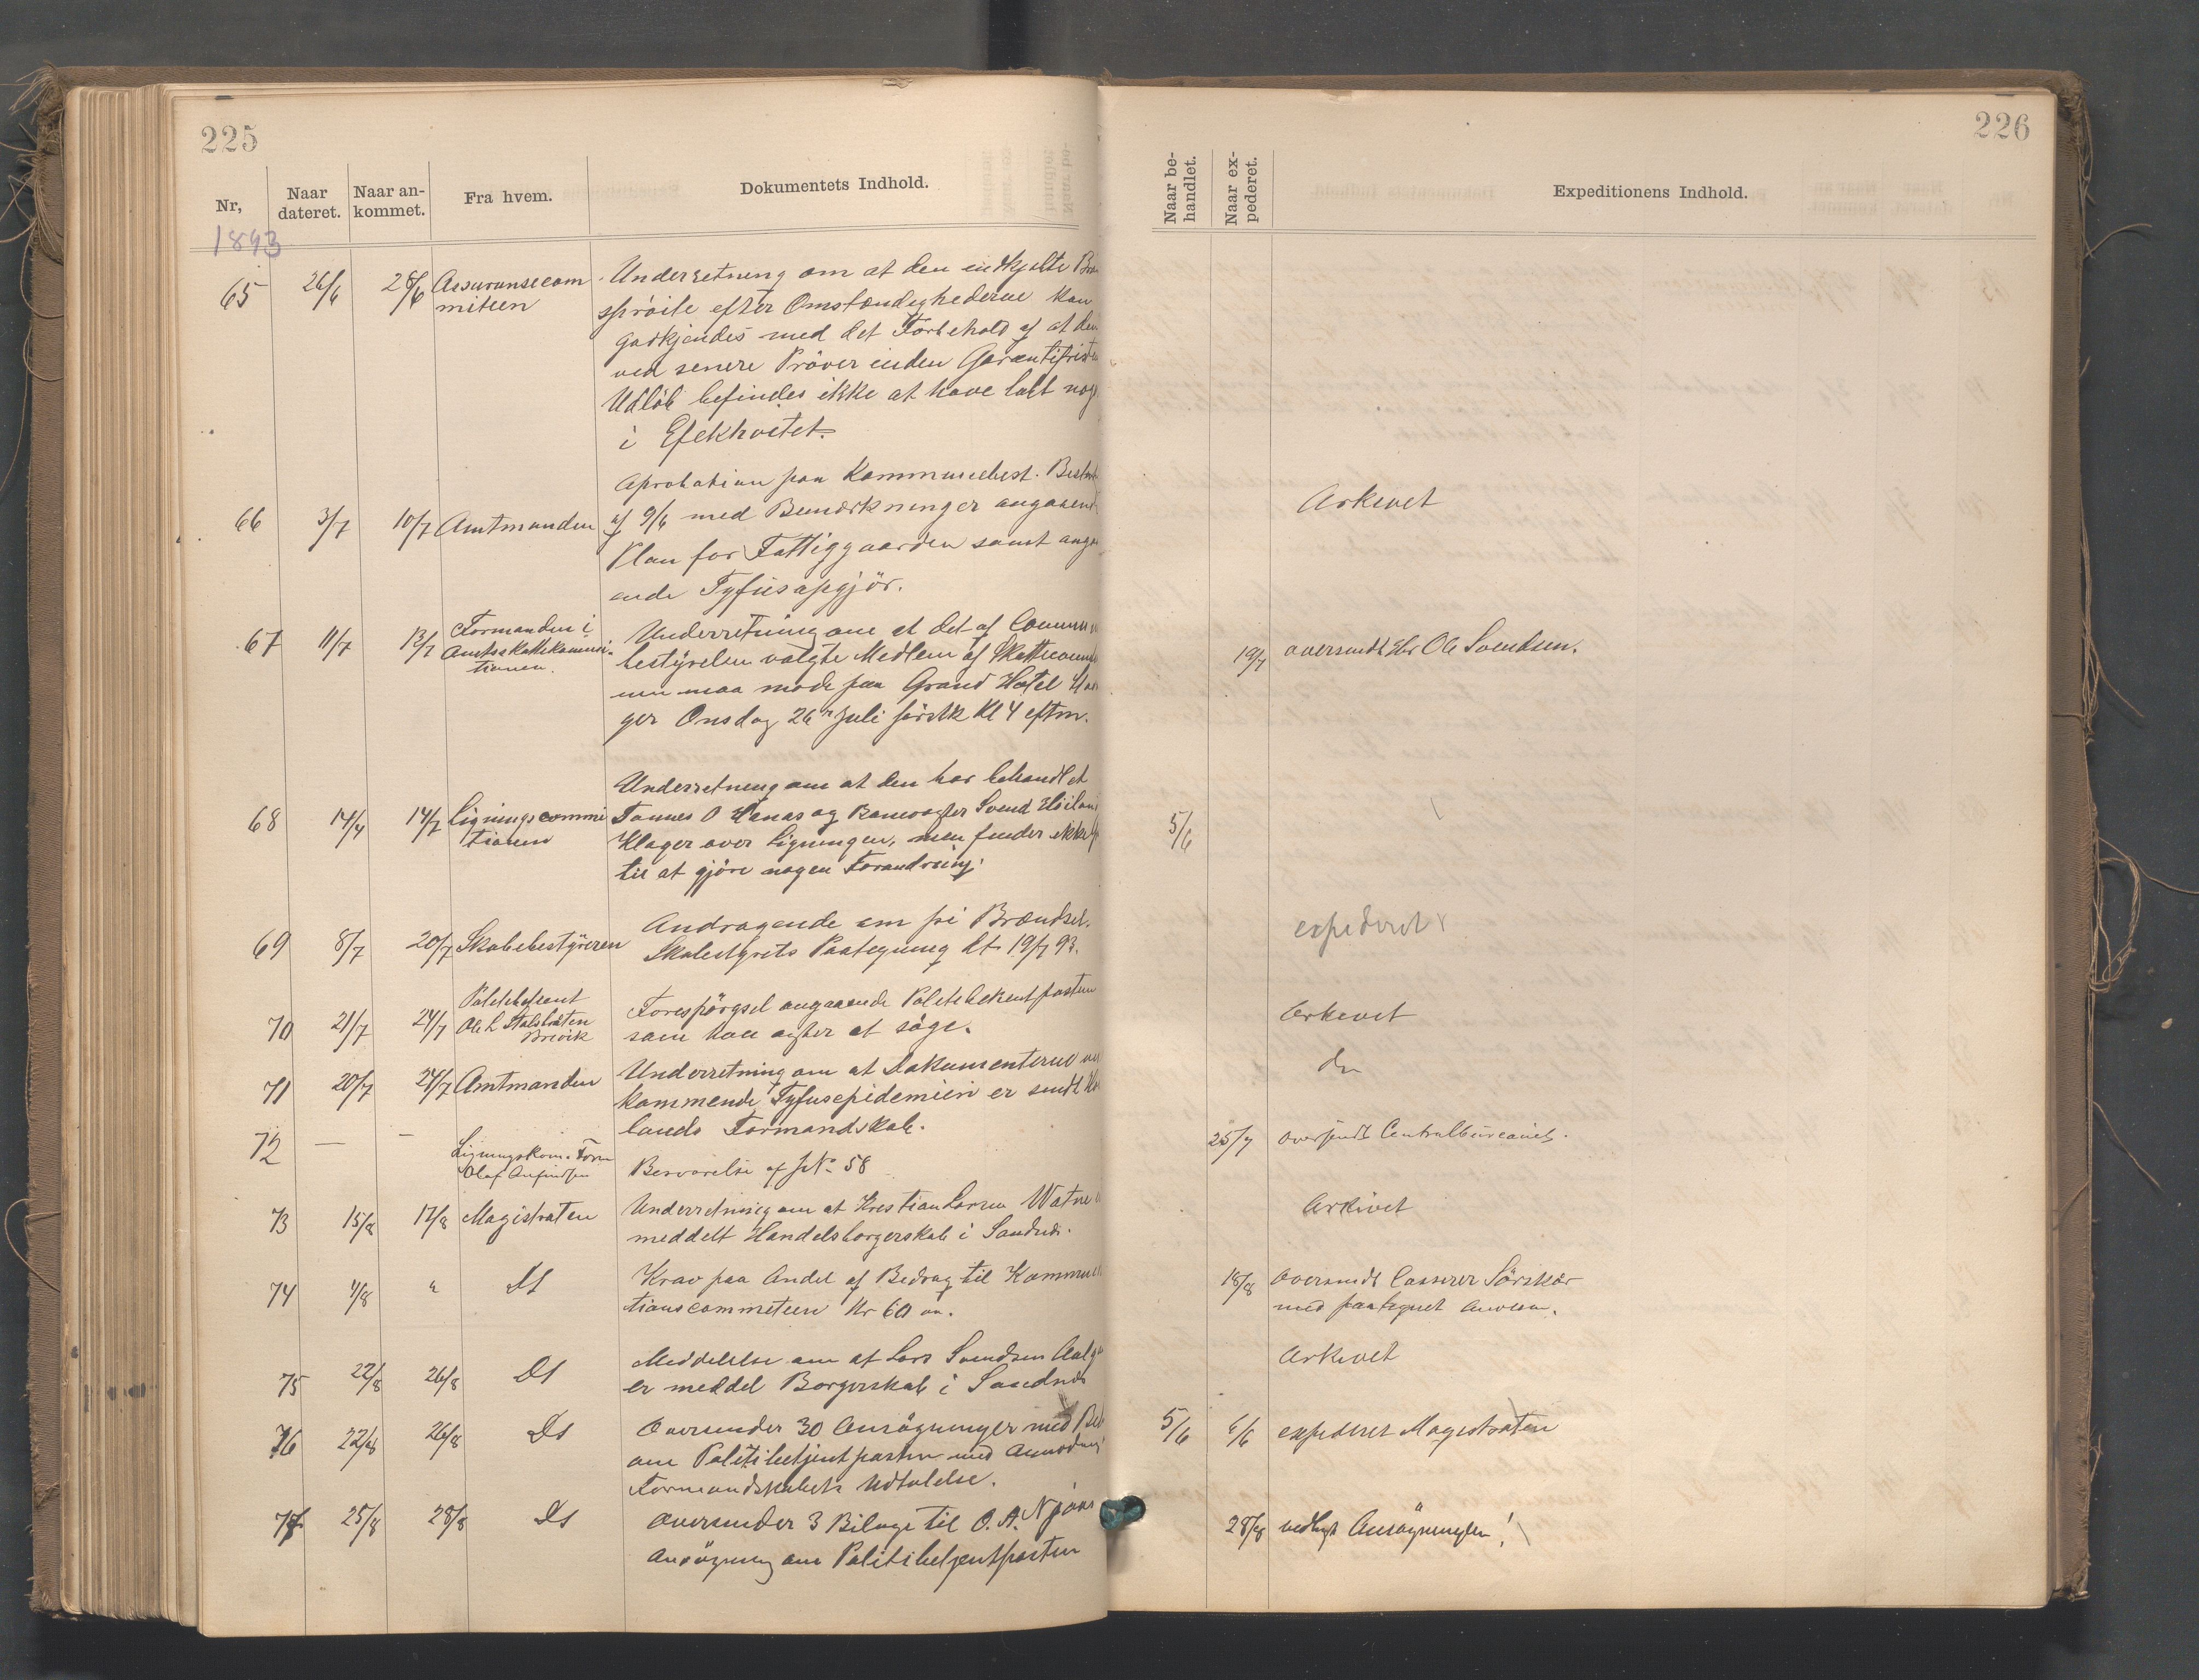 225
Nr,
Naar dateret.
Naar an-
kommet.
Fra hvem.
Dokumentets Indhold.
1893
65 26/6 28/6 Assuransecom
mitteen
Underretning om at den indkjøbte
sprøite efter Omstændighederne kan
godkjendes med det Forbehold af at den
ved senere Prøver inden Garantifristen
Udløb befindes ikke at have tabt nog
i Efekhvitet.
66 3/7 10/7 Amtmanden
Aprobation paa Kommunebest. Beslut
af 9/6 med Bemærkninger angaaend
Plan for Fattiggaarden samt anga
ende Tyfusopgjör.
67 11/7 13/7 Formanden i
Amtsskattekommi-
tionen.
Underretning om at det af Commun
bestyrelsen valgte Medlem af Skattecomm
nen maa møde paa Grand Hotel
ger Onsdag 26n Juli førstk Kl 4 eftm.
68 14/7 14/7 Ligningscommi
tionen
Underretning om at den har behandlet
Tønnes O Hanas og Banevogter Svend
Klager over Ligningen, men finder ikke
til at gjöre nogen Forandring.
69 8/7 20/7 Skolebestyreren
Andragende om fri Brændsel.
Skolestyrets Paategning dt. 19/7 93.
70 21/7 24/7 Politibetjent
Ole L
Brevik
Forespörgsel angaaende Politibetjentposten
som han agter at söge.
71 20/7 24/7 Amtmanden
Underretning om at Dokumenterne ved
kommende Tyfusepidemien er sendt
lands Formandskab.
72 — — Ligningskom. Form
Olaf
Besvarelse af No 58
73 15/8 17/8 Magistraten
Underretning om at Kristian Larsen Watne
meddelt Handelsborgerskab i Sandnes.
74 4/8 " Ds
Krav paa Andel af Bedrag til Kommu
tionscommiteen Kr 60
75 22/8 26/8 Ds
Meddelelse om at Lars Svendsen Aalg
er meddel Borgerskab i Sandnes
76 22/8 26/8 Ds
Oversender 30 Ansögninger med
om Politibetjentposten med Anmodning
Formandskabets Udtalelse.
77 25/8 28/8 Ds
Oversender 3 Bilage til O. A. Njaa
Ansögning om Politibetjentposten
226
Naar be-
handlet.
Naar ex-
pederet.
Expeditionens Indhold.
Arkivet
19/7 oversendt Hr Ole Svendsen.
5/6
expederet
Arkivet
do
25/7 oversendt Centralbureauet.
Arkivet
18/8 oversendt Casserer Sörskår
med paategnet
Arkivet
5/6 6/6 expederet Magistraten
28/8 vedlagt Ansögningen!